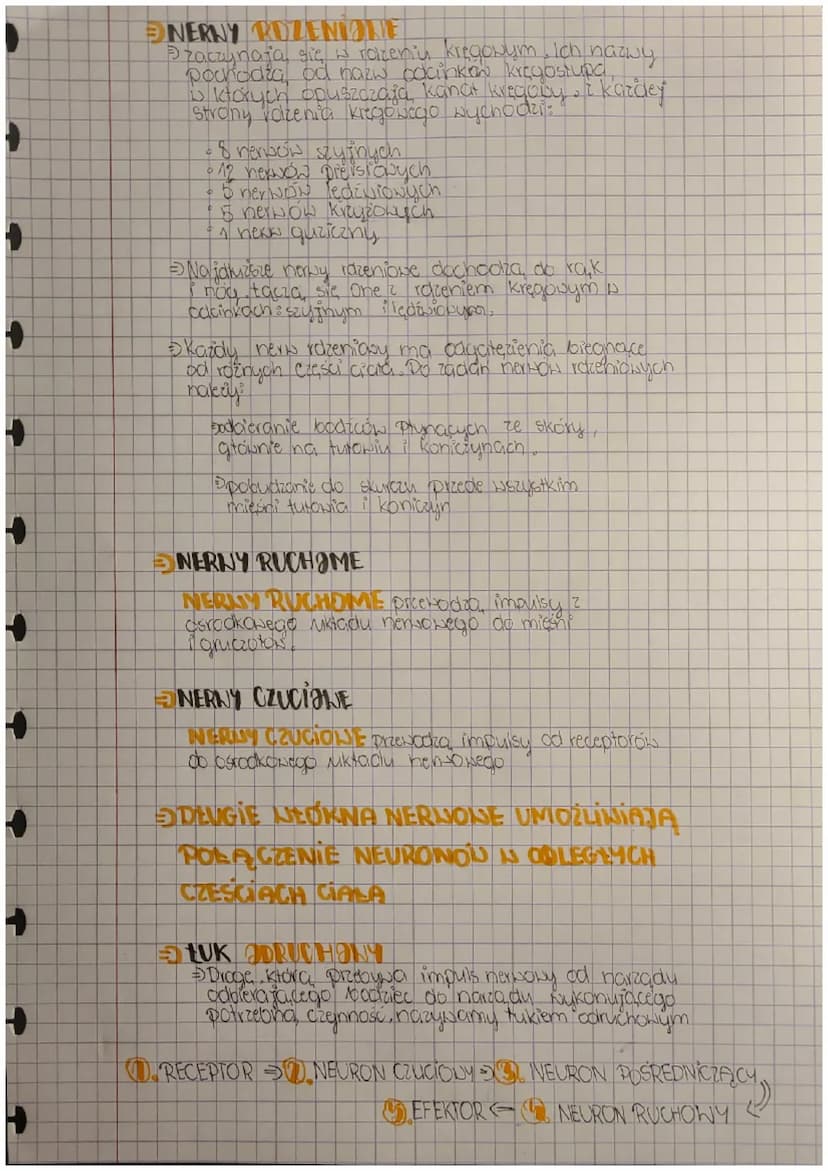 ⇒NERWY RDZENIOWE
⇒zaczynają się w rdzeniu kręgowym. Ich nazwy
pochodzą od nazw odcinków kręgosłupa,
w których opuszczają kanał kręgowy. z każdej
strony rdzenia kręgowego wychodzi:
• 8 nerwów szyjnych
• 12 nerwów piersiowych
• 5 nerwów lędźwiowych
• 5 nerwów krzyżowych
• 1 nerw guziczny
⇒Najdłuższe nerwy rdzeniowe dochodzą do rąk
i nóg. łączą się one z rdzeniem kręgowym w
odcinkach: szyjnym i lędźwiowym.
⇒Każdy nerw rdzeniowy ma odgałęzienia biegnące
od różnych części ciała. Do zadań nerwów rdzeniowych
należy:
⇒odbieranie bodźców płynących ze skóry,
głównie na tułowiu i kończynach.
⇒pobudzanie do skurczu przede wszystkim
mięśni tułowia i kończyn
⇒NERWY RUCHOWE
NERWY RUCHOWE przewodzą impulsy z
ośrodkowego układu nerwowego do mięśni
i gruczołów.
⇒NERWY CZUCIOWE
NERWY CZUCIOWE przewodzą impulsy od receptorów
do ośrodkowego układu nerwowego
⇒DŁUGIE WŁÓKNA NERWOWE UMOŻLIWIAJĄ
POŁĄCZENIE NEURONÓW W ODLEGŁYCH
CZĘŚCIACH CIAŁA
⇒ŁUK ODRUCHOWY
⇒Drogę, którą przebywa impuls nerwowy od narządu
odbierającego bodziec do narządu wykonującego
potrzebną czynność, nazywamy łukiem odruchowym
1. RECEPTOR ⇒ 2. NEURON CZUCIOWY ⇒ 3. NEURON POŚREDNICZĄCY
5. EFEKTOR ⇐ 4. NEURON RUCHOWY